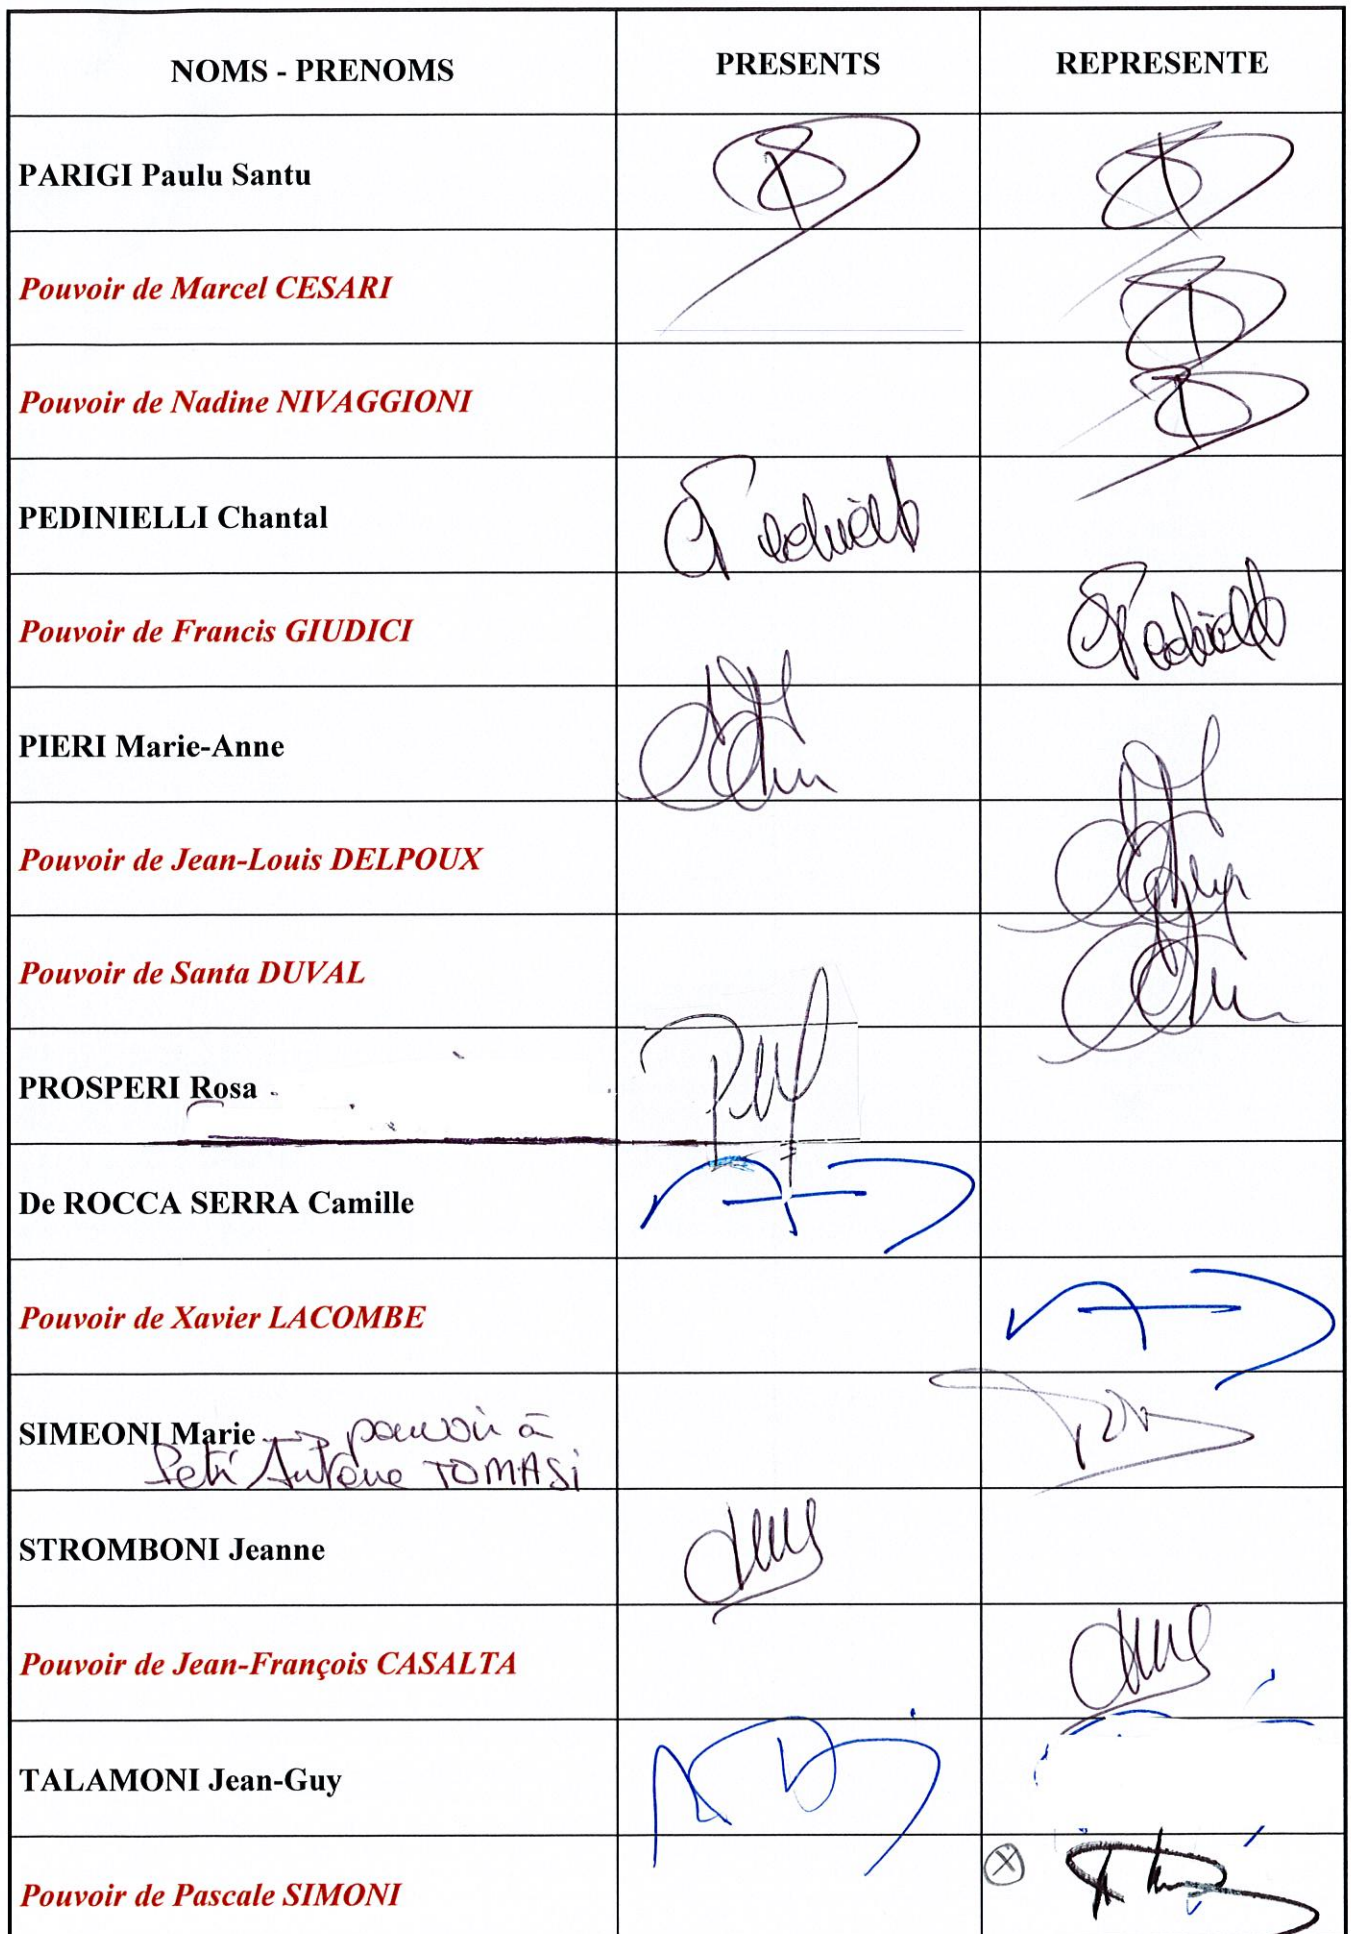 NOMS - PRENOMS PRESENTS REPRESENTE
PARIGI Paulu Santu
Pouvoir de Marcel CESARI
Pouvoir de Nadine NIVAGGIONI
PEDINIELLI Chantal
Pouvoir de Francis GIUDICI
PIERI Marie-Anne
Pouvoir de Jean-Louis DELPOUX
Pouvoir de Santa DUVAL
PROSPERI Rosa
De ROCCA SERRA Camille
Pouvoir de Xavier LACOMBE
SIMEONI Marie → pouvoir à
Petr'Antone TOMASI
STROMBONI Jeanne
Pouvoir de Jean-François CASALTA
TALAMONI Jean-Guy
Pouvoir de Pascale SIMONI